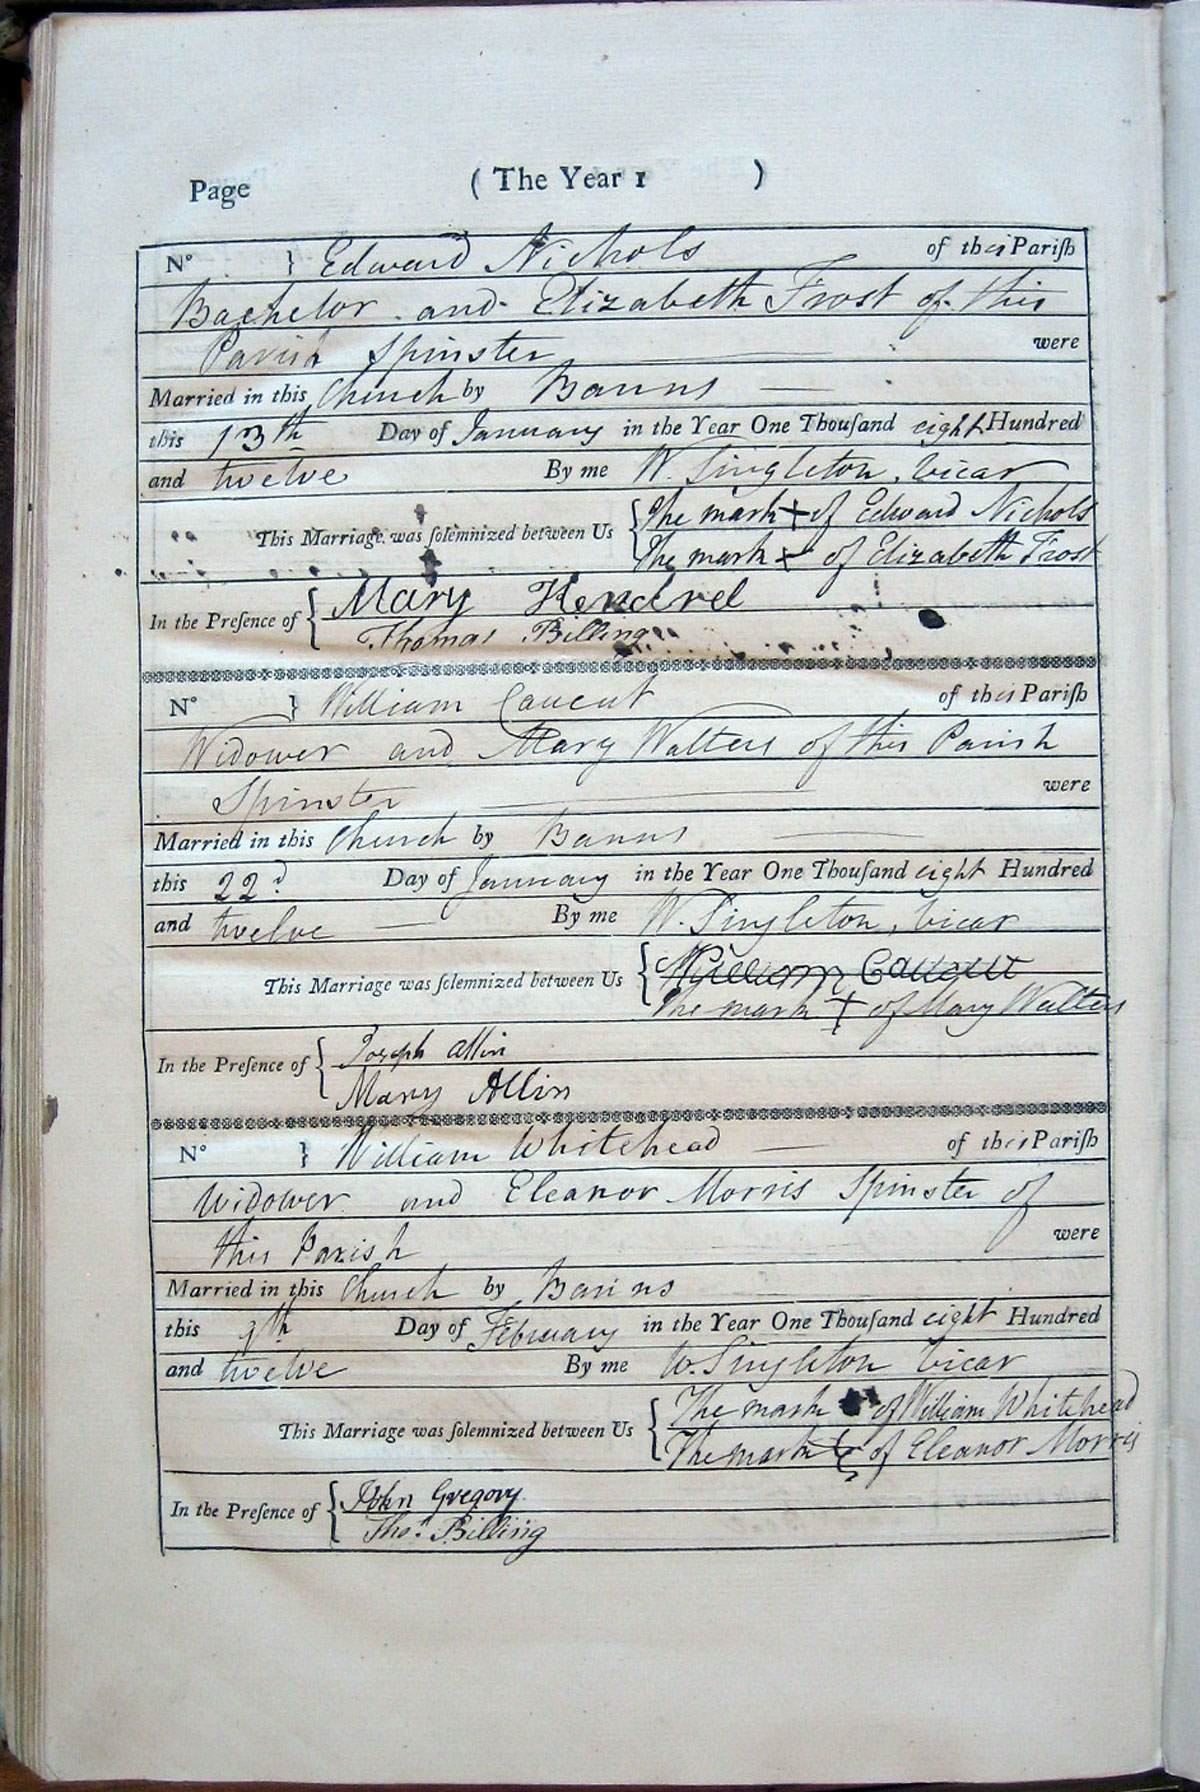 Page ( The Year 1 )
N° } Edward Nichols of this Pariſh
Bachelor and Elizabeth Frost of this
Parish Spinster were
Married in this Church by Banns
this 13th Day of January in the Year One Thouſand eight Hundred
and twelve By me W. Singleton, Vicar
This Marriage was ſolemnized between Us { The mark + of Edward Nichols
The mark + of Elizabeth Frost
In the Preſence of { Mary
Thomas Billing
N° } William of this Pariſh
Widower and Mary Walters of this Parish
Spinster were
Married in this Church by Banns
this 22d Day of January in the Year One Thouſand eight Hundred
and twelve By me W. Singleton, Vicar
This Marriage was ſolemnized between Us { William
The mark + of Mary Walters
In the Preſence of { Joseph Allin
Mary Allin
N° } William Whitehead of this Pariſh
Widower and Eleanor Morris Spinster of
this Parish were
Married in this Church by Banns
this Day of February in the Year One Thouſand eight Hundred
and twelve By me W. Singleton Vicar
This Marriage was ſolemnized between Us { The mark of William Whitehead
The mark + of Eleanor Morris
In the Preſence of { John Gregory
Thos. Billing